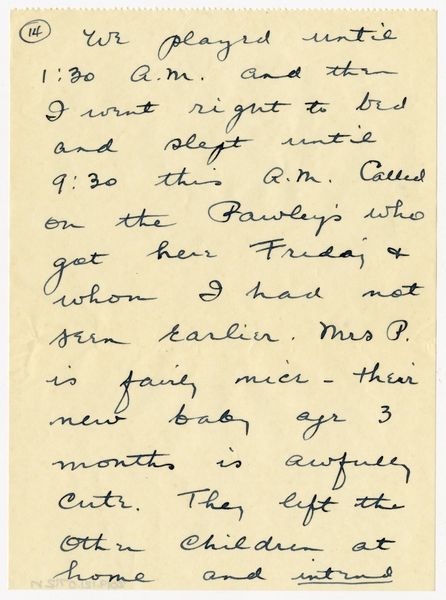 14
We played until
1:30 A.M. and then
I went right to bed
and slept until
9:30 this A.M. Called
on the Pawley's who
got here Friday &
whom I had not
seen earlier. Mrs P.
is fairly nice - their
new baby age 3
months is awfully
cute. They left the
other children at
home and intend